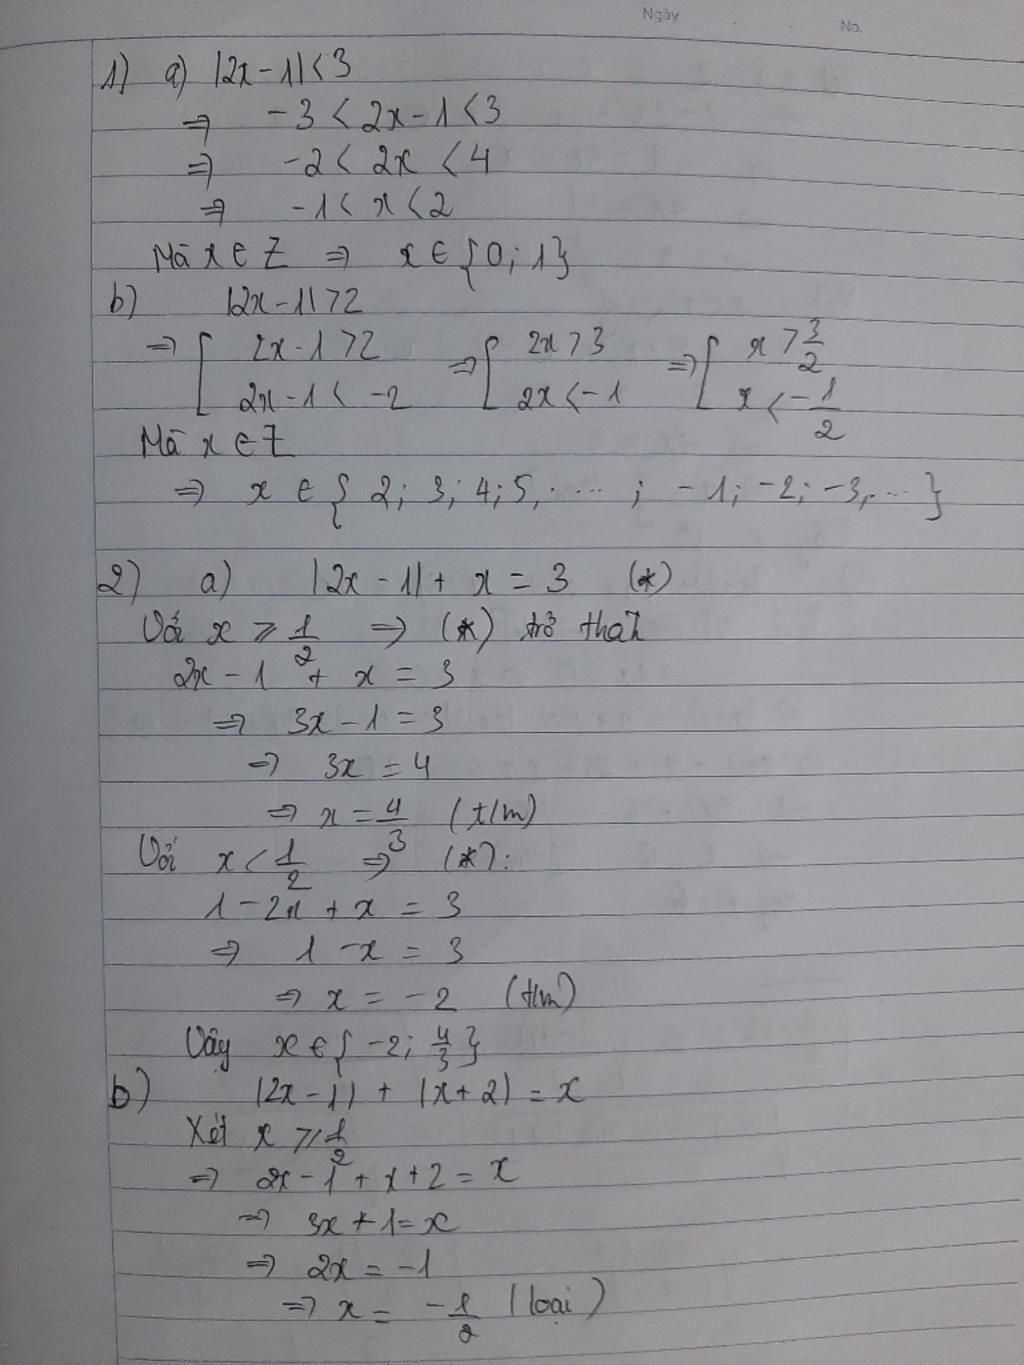 Ngày
No.
1) a) |2x - 1| < 3
⇒ -3 < 2x - 1 < 3
⇒ -2 < 2x < 4
⇒ -1 < x < 2
Mà x ∈ Z ⇒ x ∈ {0; 1}
b) |2x - 1| > 2
⇒ [ 2x - 1 > 2 ⇒ [ 2x > 3 ⇒ [ x > 3/2
2x - 1 < -2 2x < -1 x < -1/2
Mà x ∈ Z
⇒ x ∈ { 2; 3; 4; 5, ..... ; -1; -2; -3, ... }
2) a) |2x - 1| + x = 3 (*)
Với x ≥ 1/2 ⇒ (*) trở thà
2x - 1 + x = 3
⇒ 3x - 1 = 3
⇒ 3x = 4
⇒ x = 4/3 (t/m)
Với x < 1/2 ⇒ (*):
1 - 2x + x = 3
⇒ 1 - x = 3
⇒ x = -2 (t/m)
Vậy x ∈ { -2; 4/3 }
b) |2x - 1| + |x + 2| = x
Xét x ≥ 1/2
⇒ 2x - 1 + x + 2 = x
⇒ 3x + 1 = x
⇒ 2x = -1
⇒ x = -1/2 (loại)